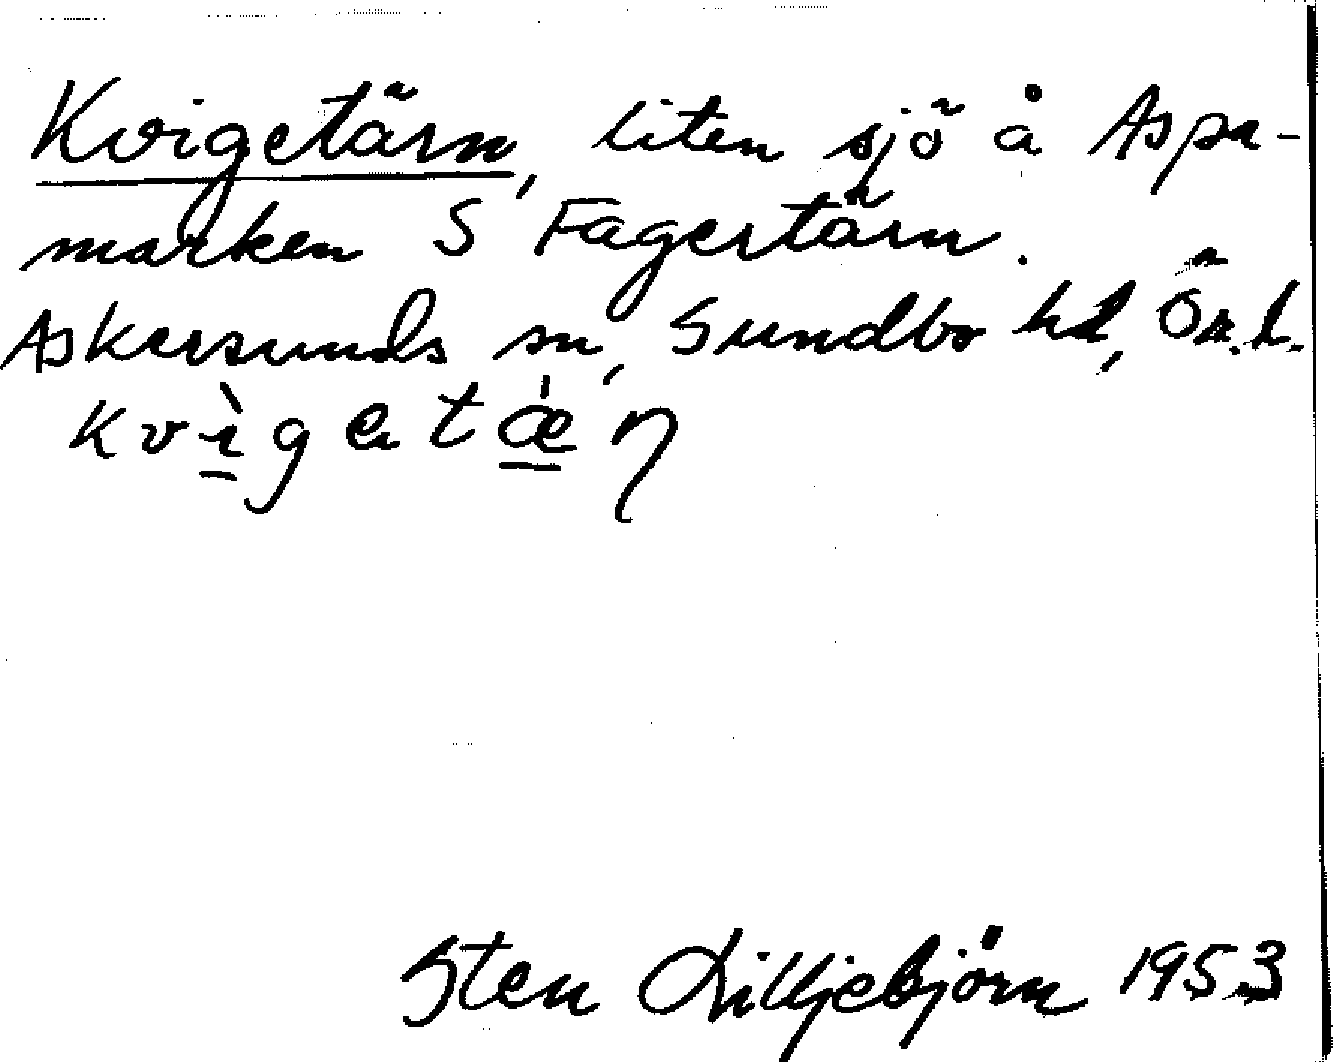 Kvigetärn, liten sjö å Aspa-
marken S Fagertärn.
Askersunds sn, Sundbo hd, Ör.l.
kvìgetǽɳ
Sten Lilljebjörn 1953